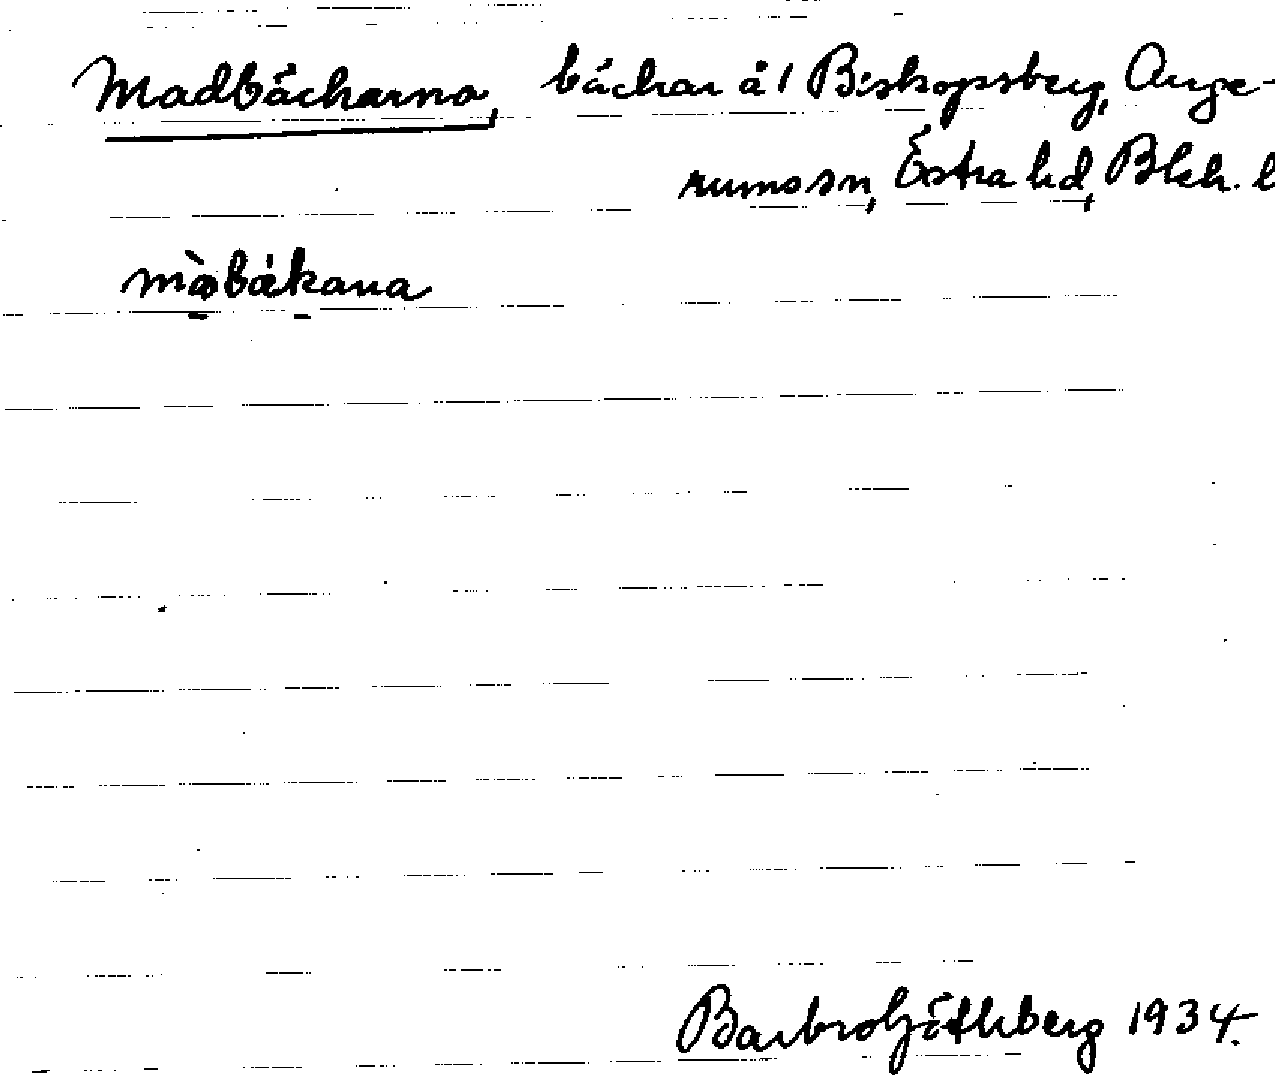 Madbäckarna, bäckar å 1 Biskopsberg, Ange-
rums sn, Östra hd, Blek. l
màbækana
Barbro Göthberg 1934.